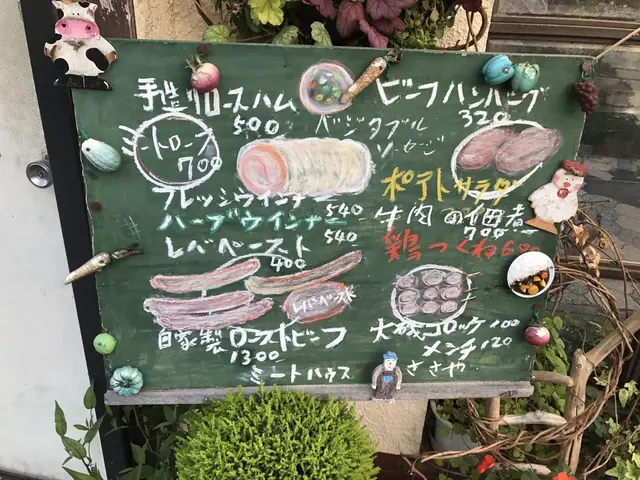 手造りロースハム
500
ミートローフ
700
フレッシュウインナー
540
ハーブウインナー
540
レバペースト
400
レバペースト
自家製ローストビーフ
1300
ビーフハンバーグ
320
ベジタブル
ソーセージ
ポテトサラダ
牛肉の佃煮
700
鶏つくね600
大磯コロッケ100
メンチ120
ミートハウス ささや